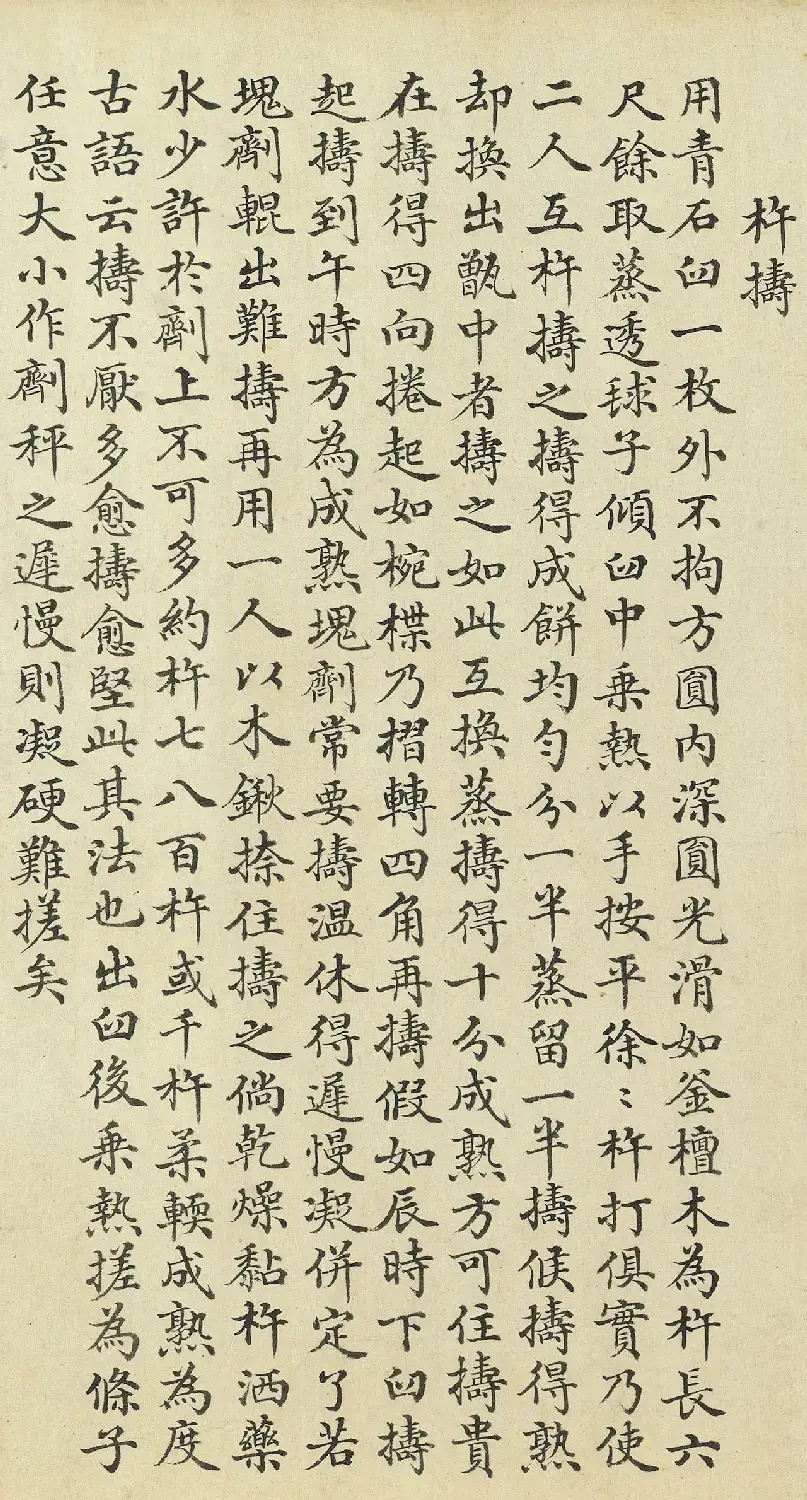 杵擣
用青石臼一枚外不拘方圓內深圓光滑如釜檀木為杵長六
尺餘取蒸透毬子傾臼中乗熱以手按平徐〻杵打俱實乃使
二人互杵擣之擣得成餅均勻分一半蒸留一半擣候擣得熟
却換出甑中者擣之如此互換蒸擣得十分成熟方可住擣貴
在擣得四向捲起如椀楪乃摺轉四角再擣假如辰時下臼擣
起擣到午時方為成熟塊劑常要擣溫休得遲慢凝併定了若
塊劑輥出難擣再用一人以木鍬捺住擣之倘乾燥黏杵洒藥
水少許於劑上不可多約杵七八百杵或千杵柔輭成熟為度
古語云擣不厭多愈擣愈堅此其法也出臼後乗熱搓為條子
任意大小作劑秤之遲慢則凝硬難搓矣